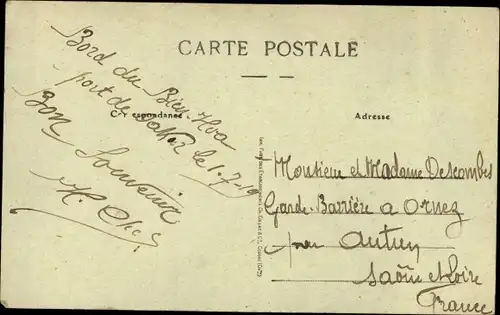 CARTE POSTALE
Correspondance
Bord du Bien-Hoa
port de Dakar le 1-7-19
Bon Souvenir
Adresse
Monsieur et Madame Descombes
Garde-Barrière a Ornez
par Autun
Saône et Loire
France